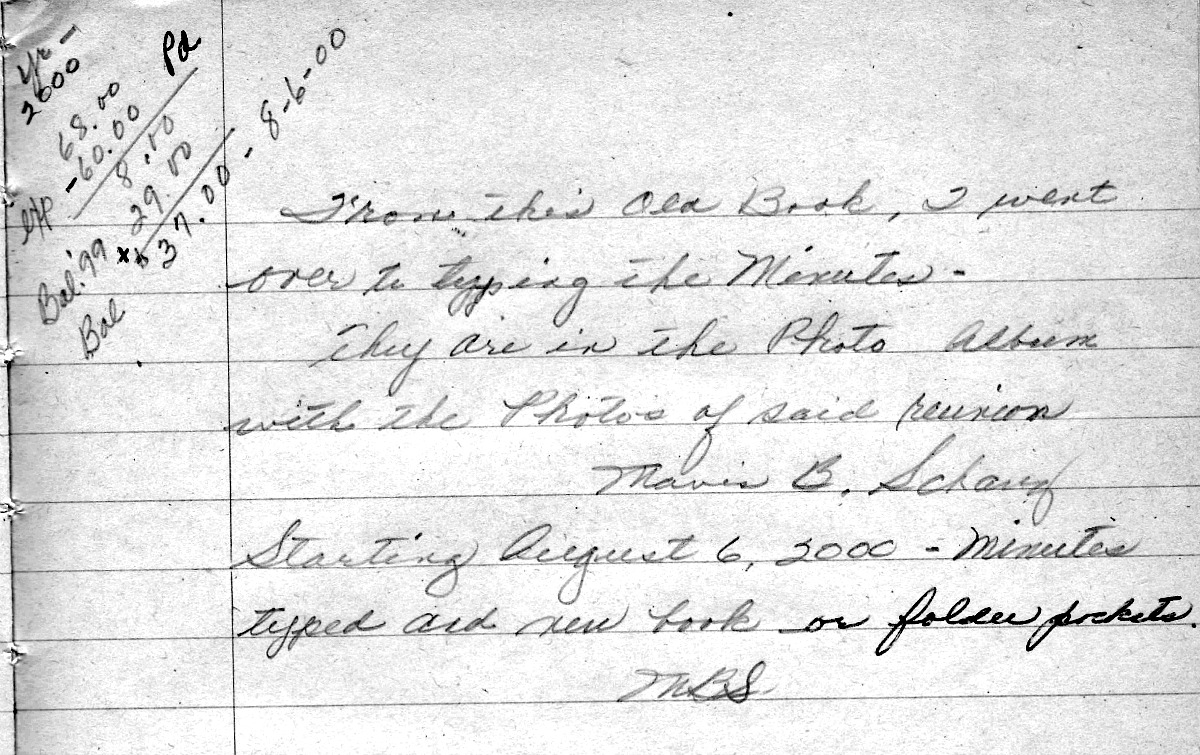 yr - 2000
Pd
68.00
exp -60.00
8.00
Bal. '99 29.00
Bal 37.00 - 8-6-00
From this Old Book, I went
over to typing the Minutes -
They are in the Photo Album
with the Photos of said reunion
Mavis B.
Starting August 6, 2000 - Minutes
typed and new book or folder pockets.
MBS